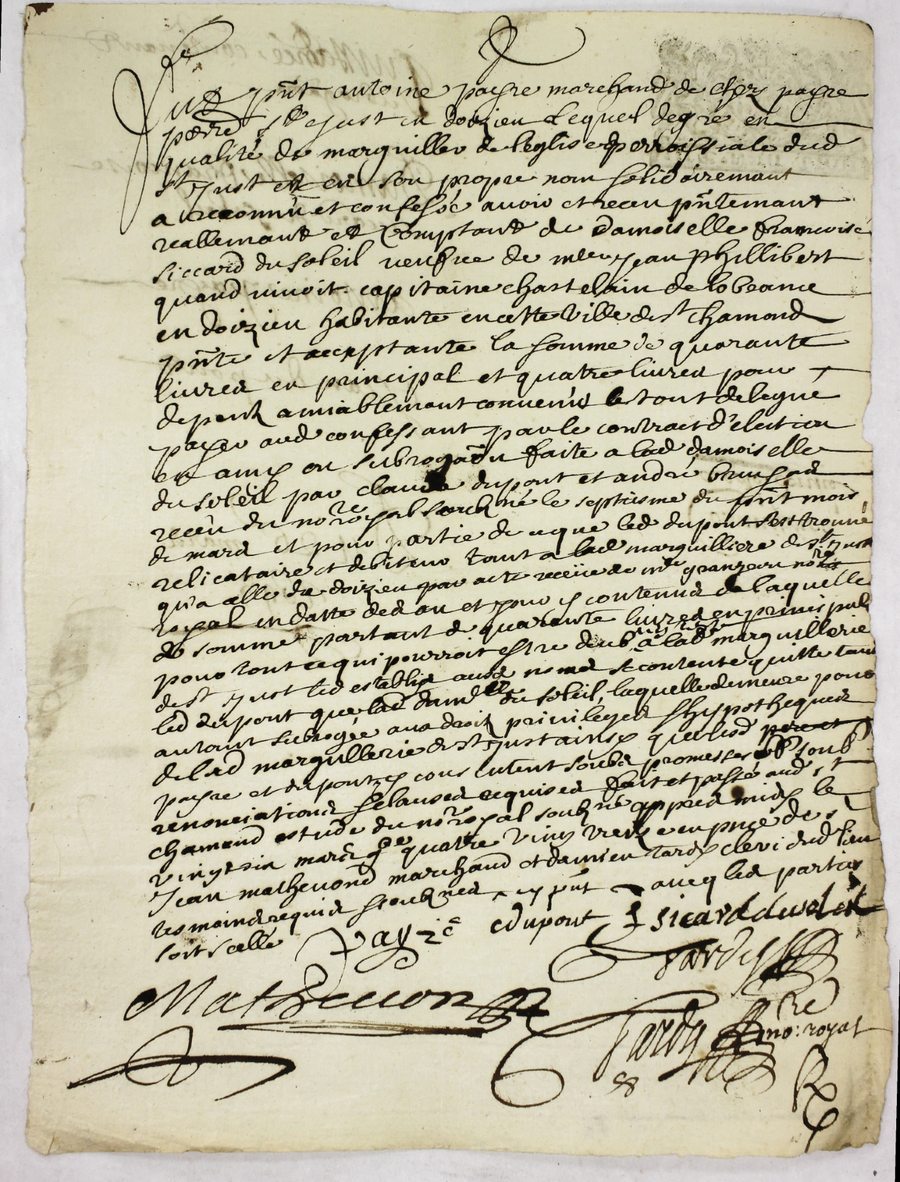 Fut pnt antoine payre marchand de chez payre
ste Just en doizieu lequel de gré en
qualité de marguiller de leglise perroissiale dud
st Just et en son propre nom solidairemant
a reconnu et confessé avoir et receu pntemant
reallemant et Comptant de Damoiselle francoise
siccard du soleil veufve de mre jean phillibert
quand vivoit capitaine chastelain de
en doizieu habitante en cette ville de st chamond
pnte et acceptante la somme de quarante
livres en principal et quatre livres pour
depens amiablement convenus le tout delegue
payer aud confessant par le contract d'élection
en amy ou subrogaon faite a lad damoiselle
du soleil par claude dupont et andré
receu du nore royal soubné le septiesme du pnt mois
de mars et pour partie de ce que led dupont s'est trouvé
relicataire et debiteur tant a lad marguillerie de st Just
qu'a celle de doizieu par acte receüe de me granjon nore
royal en datte des an et jour y contenus de laquelle
de somme partant de quarante livres en principal
pour tout ce qui pourroit estre deub a lad marguillerie
de st Just led estably ausd noms se contente quitte tant
led dupont que lad damlle du soleil, laquelle demeure pour
autant subrogée aux droits privileges & hypotheques
de lad marguillerie de st Just ainsy que lesd
payre et dupont y consentent soubs promesses obb soub
renonciations & clauses requises fait et passé aud st
chamond estude du nore royal soubné appres midy le
vingt six mars gbc quatre vingt treize en pnce de sr
Jean mathevond marchand et damien tardy clerc dud lieu
tesmoins requis soubnes avecq les parties
soit scellé
Payre Cdupont f sicard du soleil
Tardy
Mathevon
Tardy no: royal